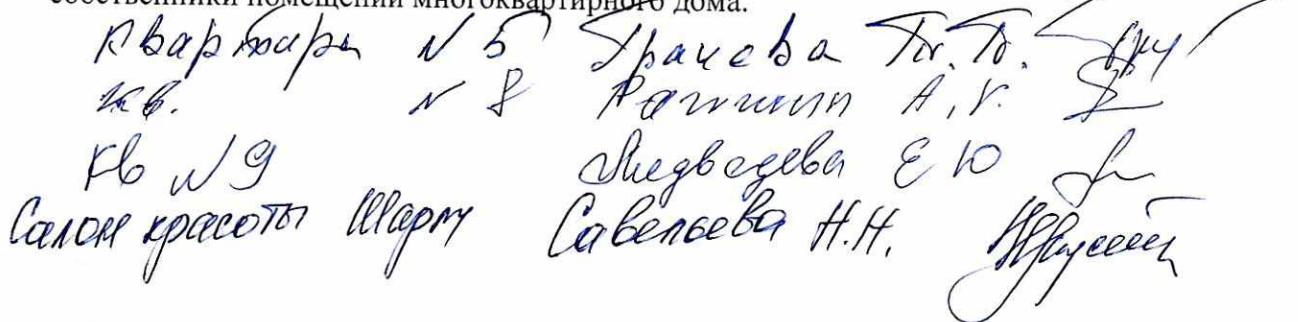 собственники помещений многоквартирного дома.
Квартира № 5 Грачева Т.В.
кв. № 8 А.
кв № 9 Медведева Е Ю
Салон красоты Шарм Савельева Н.Н.